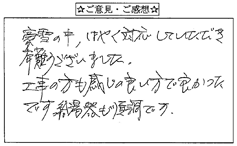 ☆ご意見・ご感想☆
豪雪の中、はやく対応していただき
有難うございました。
工事の方も感じの良い方で良かった
です。給湯器も順調です。